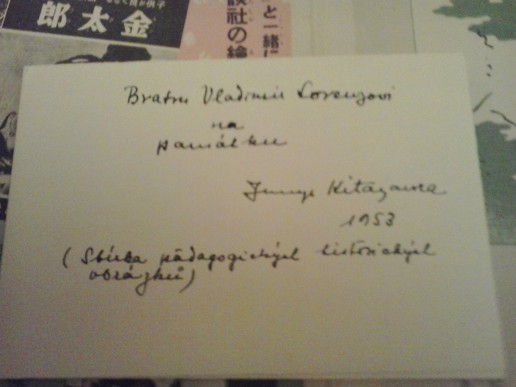 金太郎
談社の繪
と一緒に
Bratru Vladimíru Lorenzovi
na
památku
Kitagawa
1953
(Sbírka pädagogických historických
obrázků)